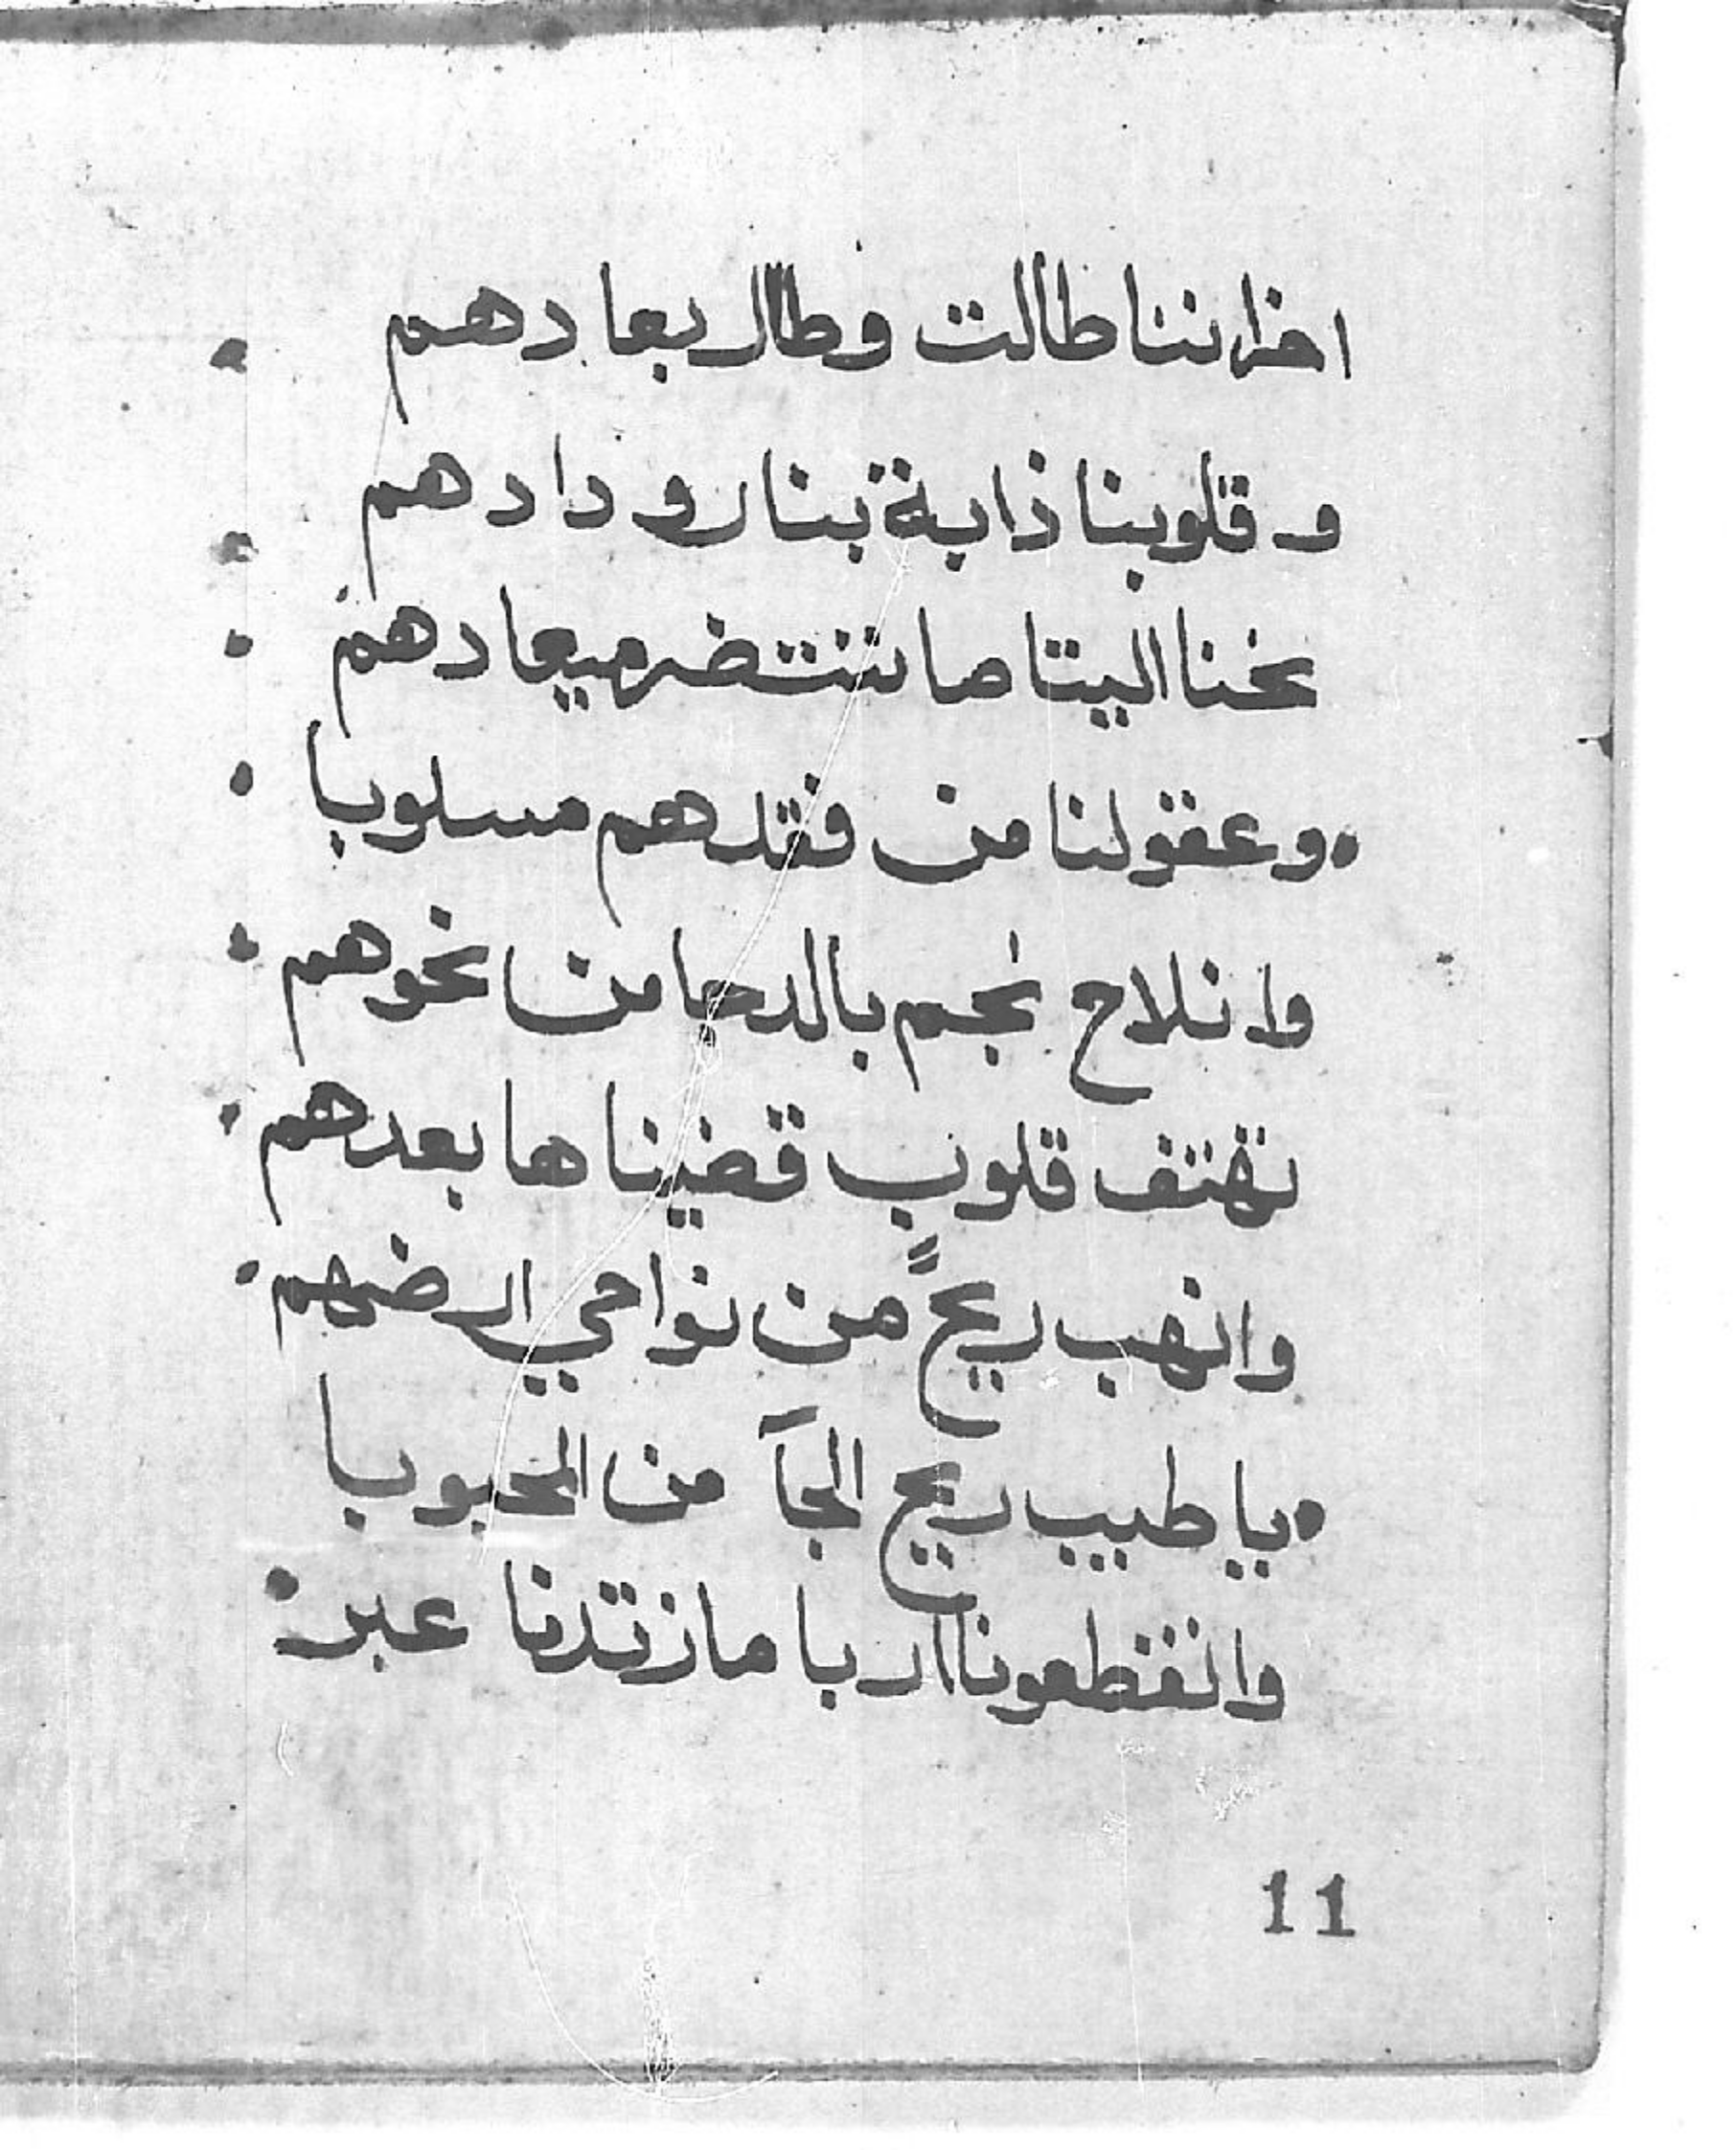 احزاننا طالت وطال بعادهم •
وقلوبنا ذابة بنار ودادهم •
نحنا اليتاما ننتضر ميعادهم •
• وعقولنا من فقدهم مسلوبا •
وانلاح نجم بالدجا من نحوهم •
تهتف قلوب قضيناها بعدهم •
وانهب ريحٍ من نواحي ارضهم •
• يا طيب ريح الجآ من المحبوبا
وانقطعونا اربا مازتدنا عبر •
11